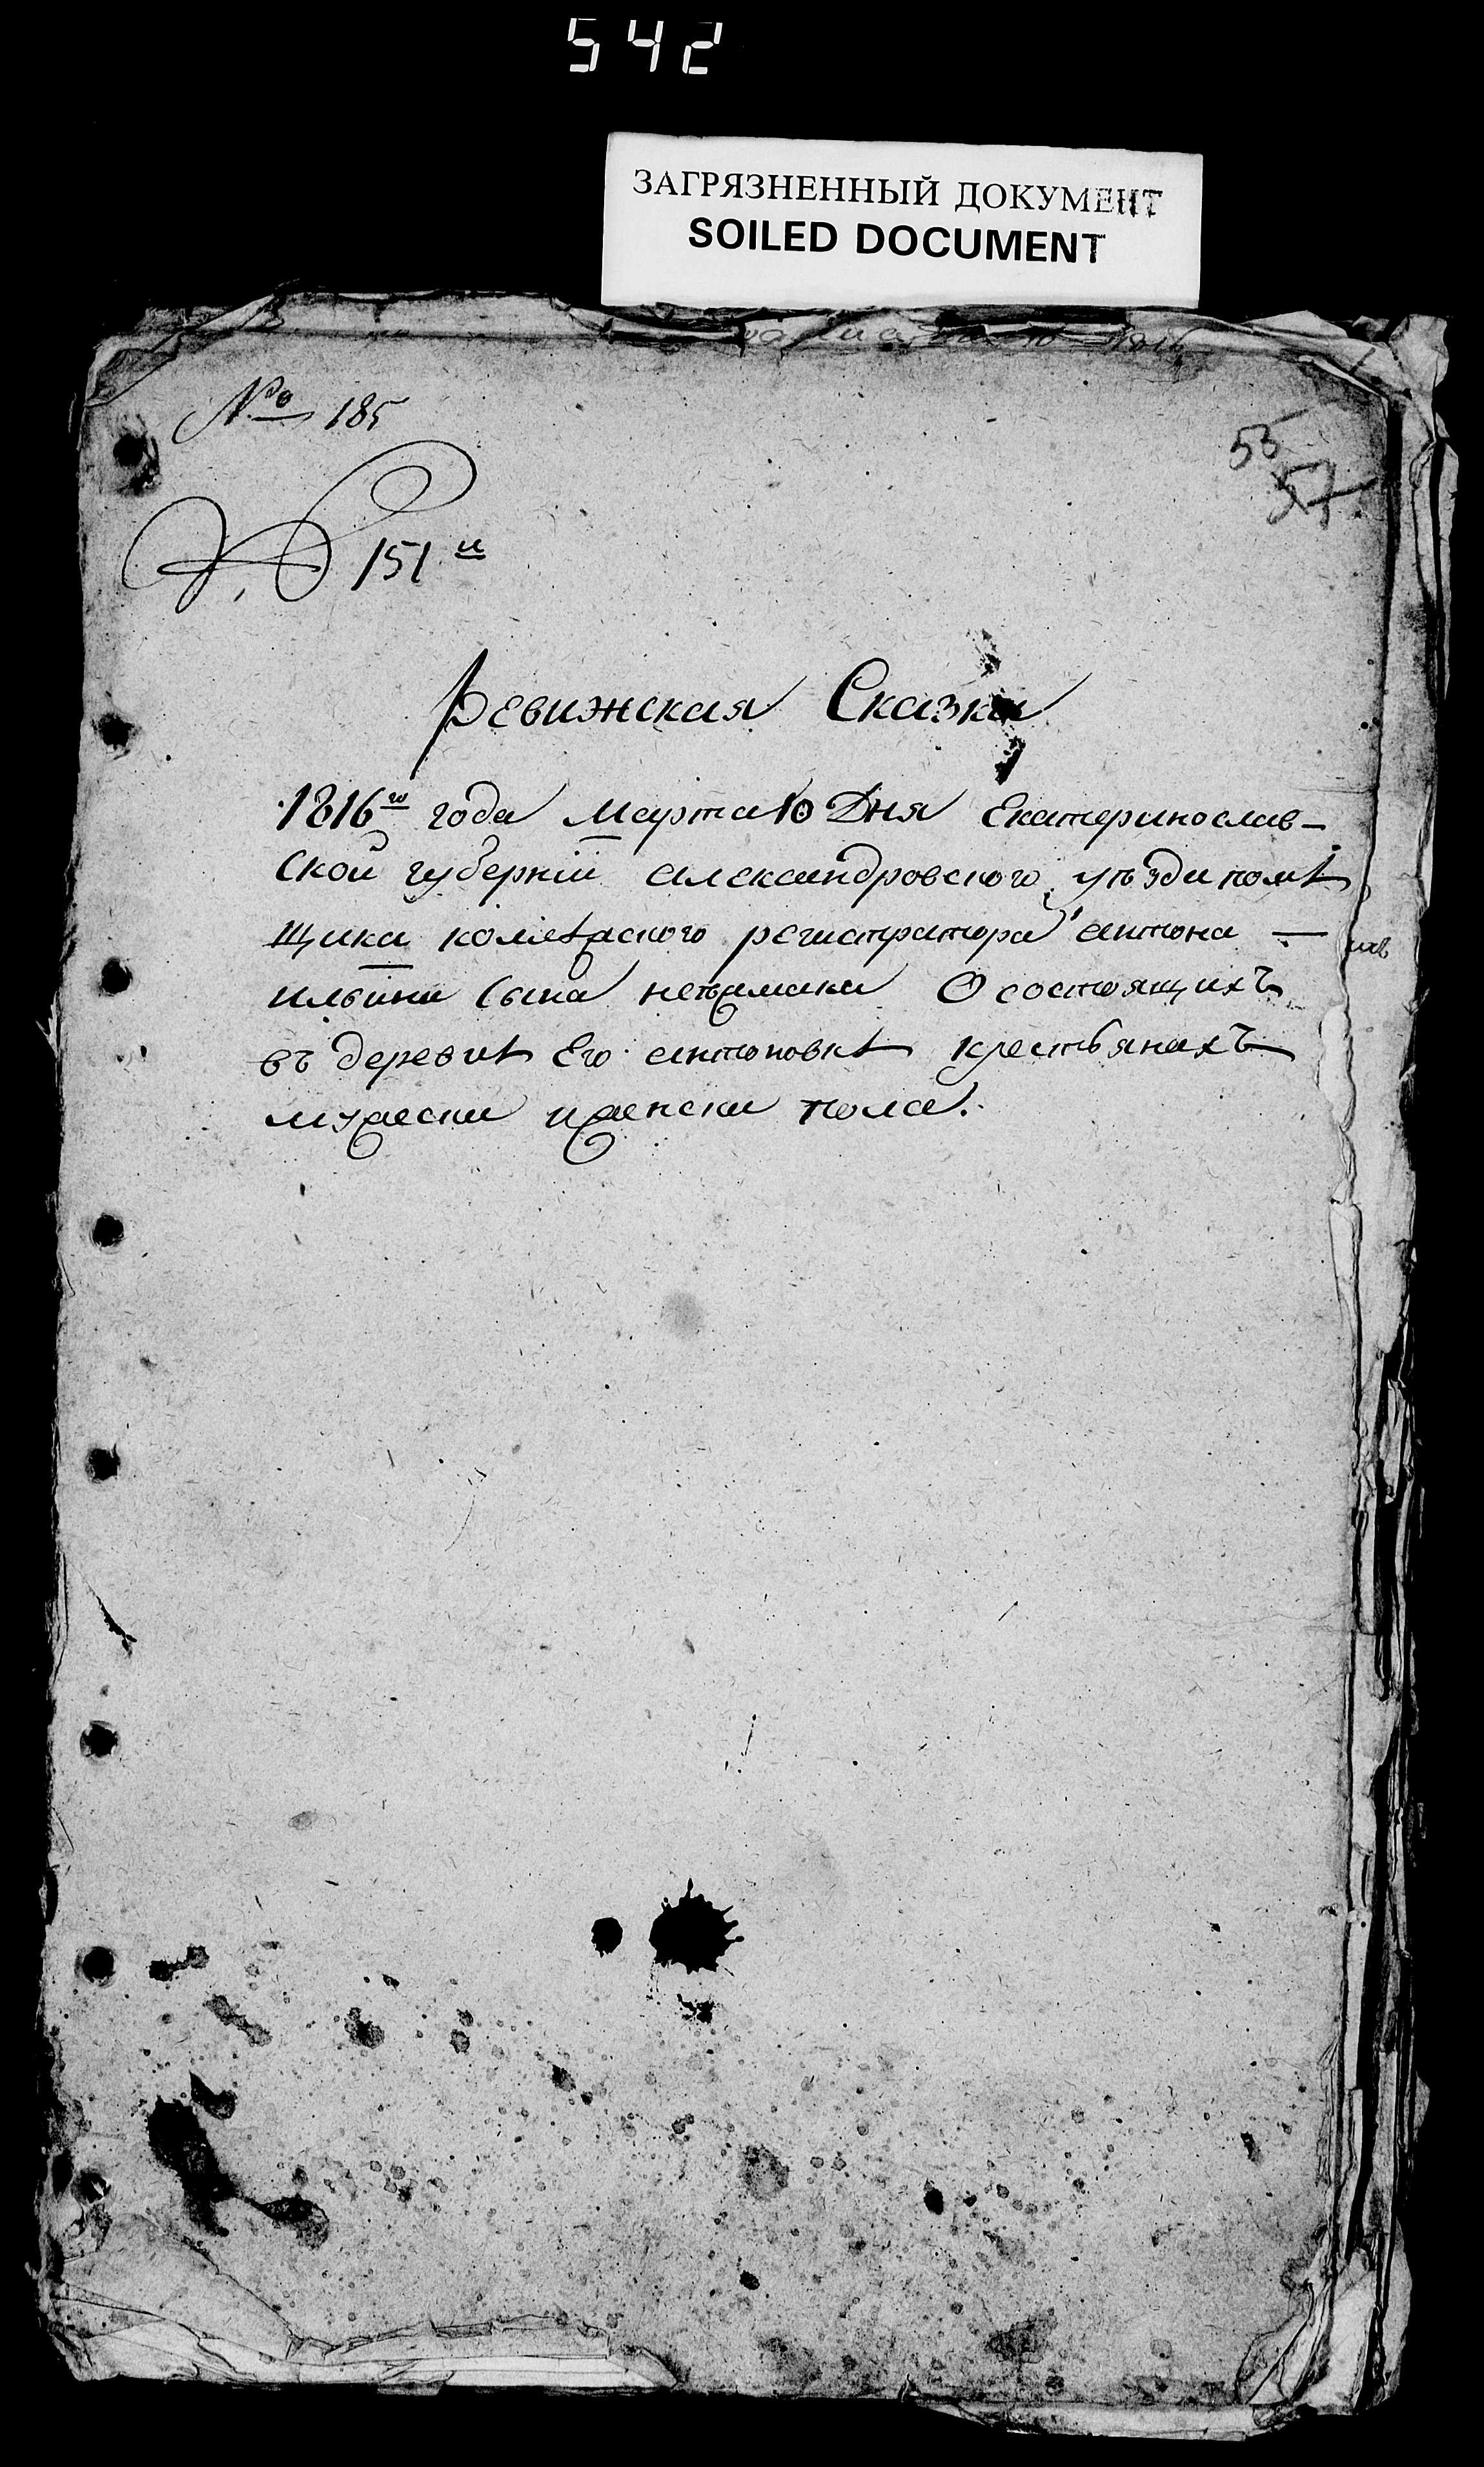 542
ЗАГРЯЗНЕННЫЙ ДОКУМЕНТ
SOILED DOCUMENT
№ 185
55
57
151 й
Ревижская Сказка
1816го года Марта 10 Дня Екатеринослав-
ской губерніи александровского уѣзда помѣ
щика колежского регистратора антона —
ильина сына О состоящихъ
въ деревнѣ Его антоновкѣ крестьянахъ
мужеска иженска пола.